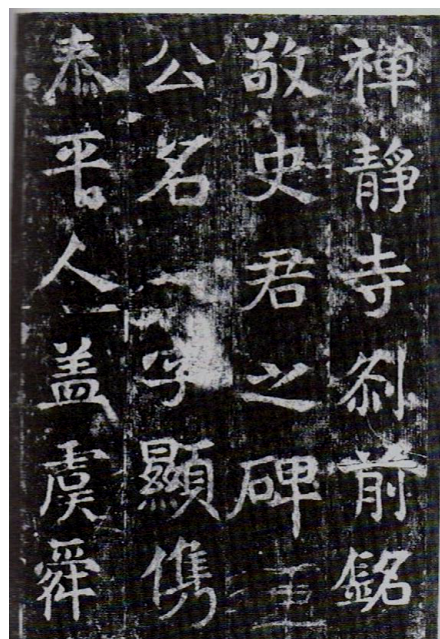 禪靜寺刹前銘
敬史君之碑
公名字顯儁
泰平人盖虞舜